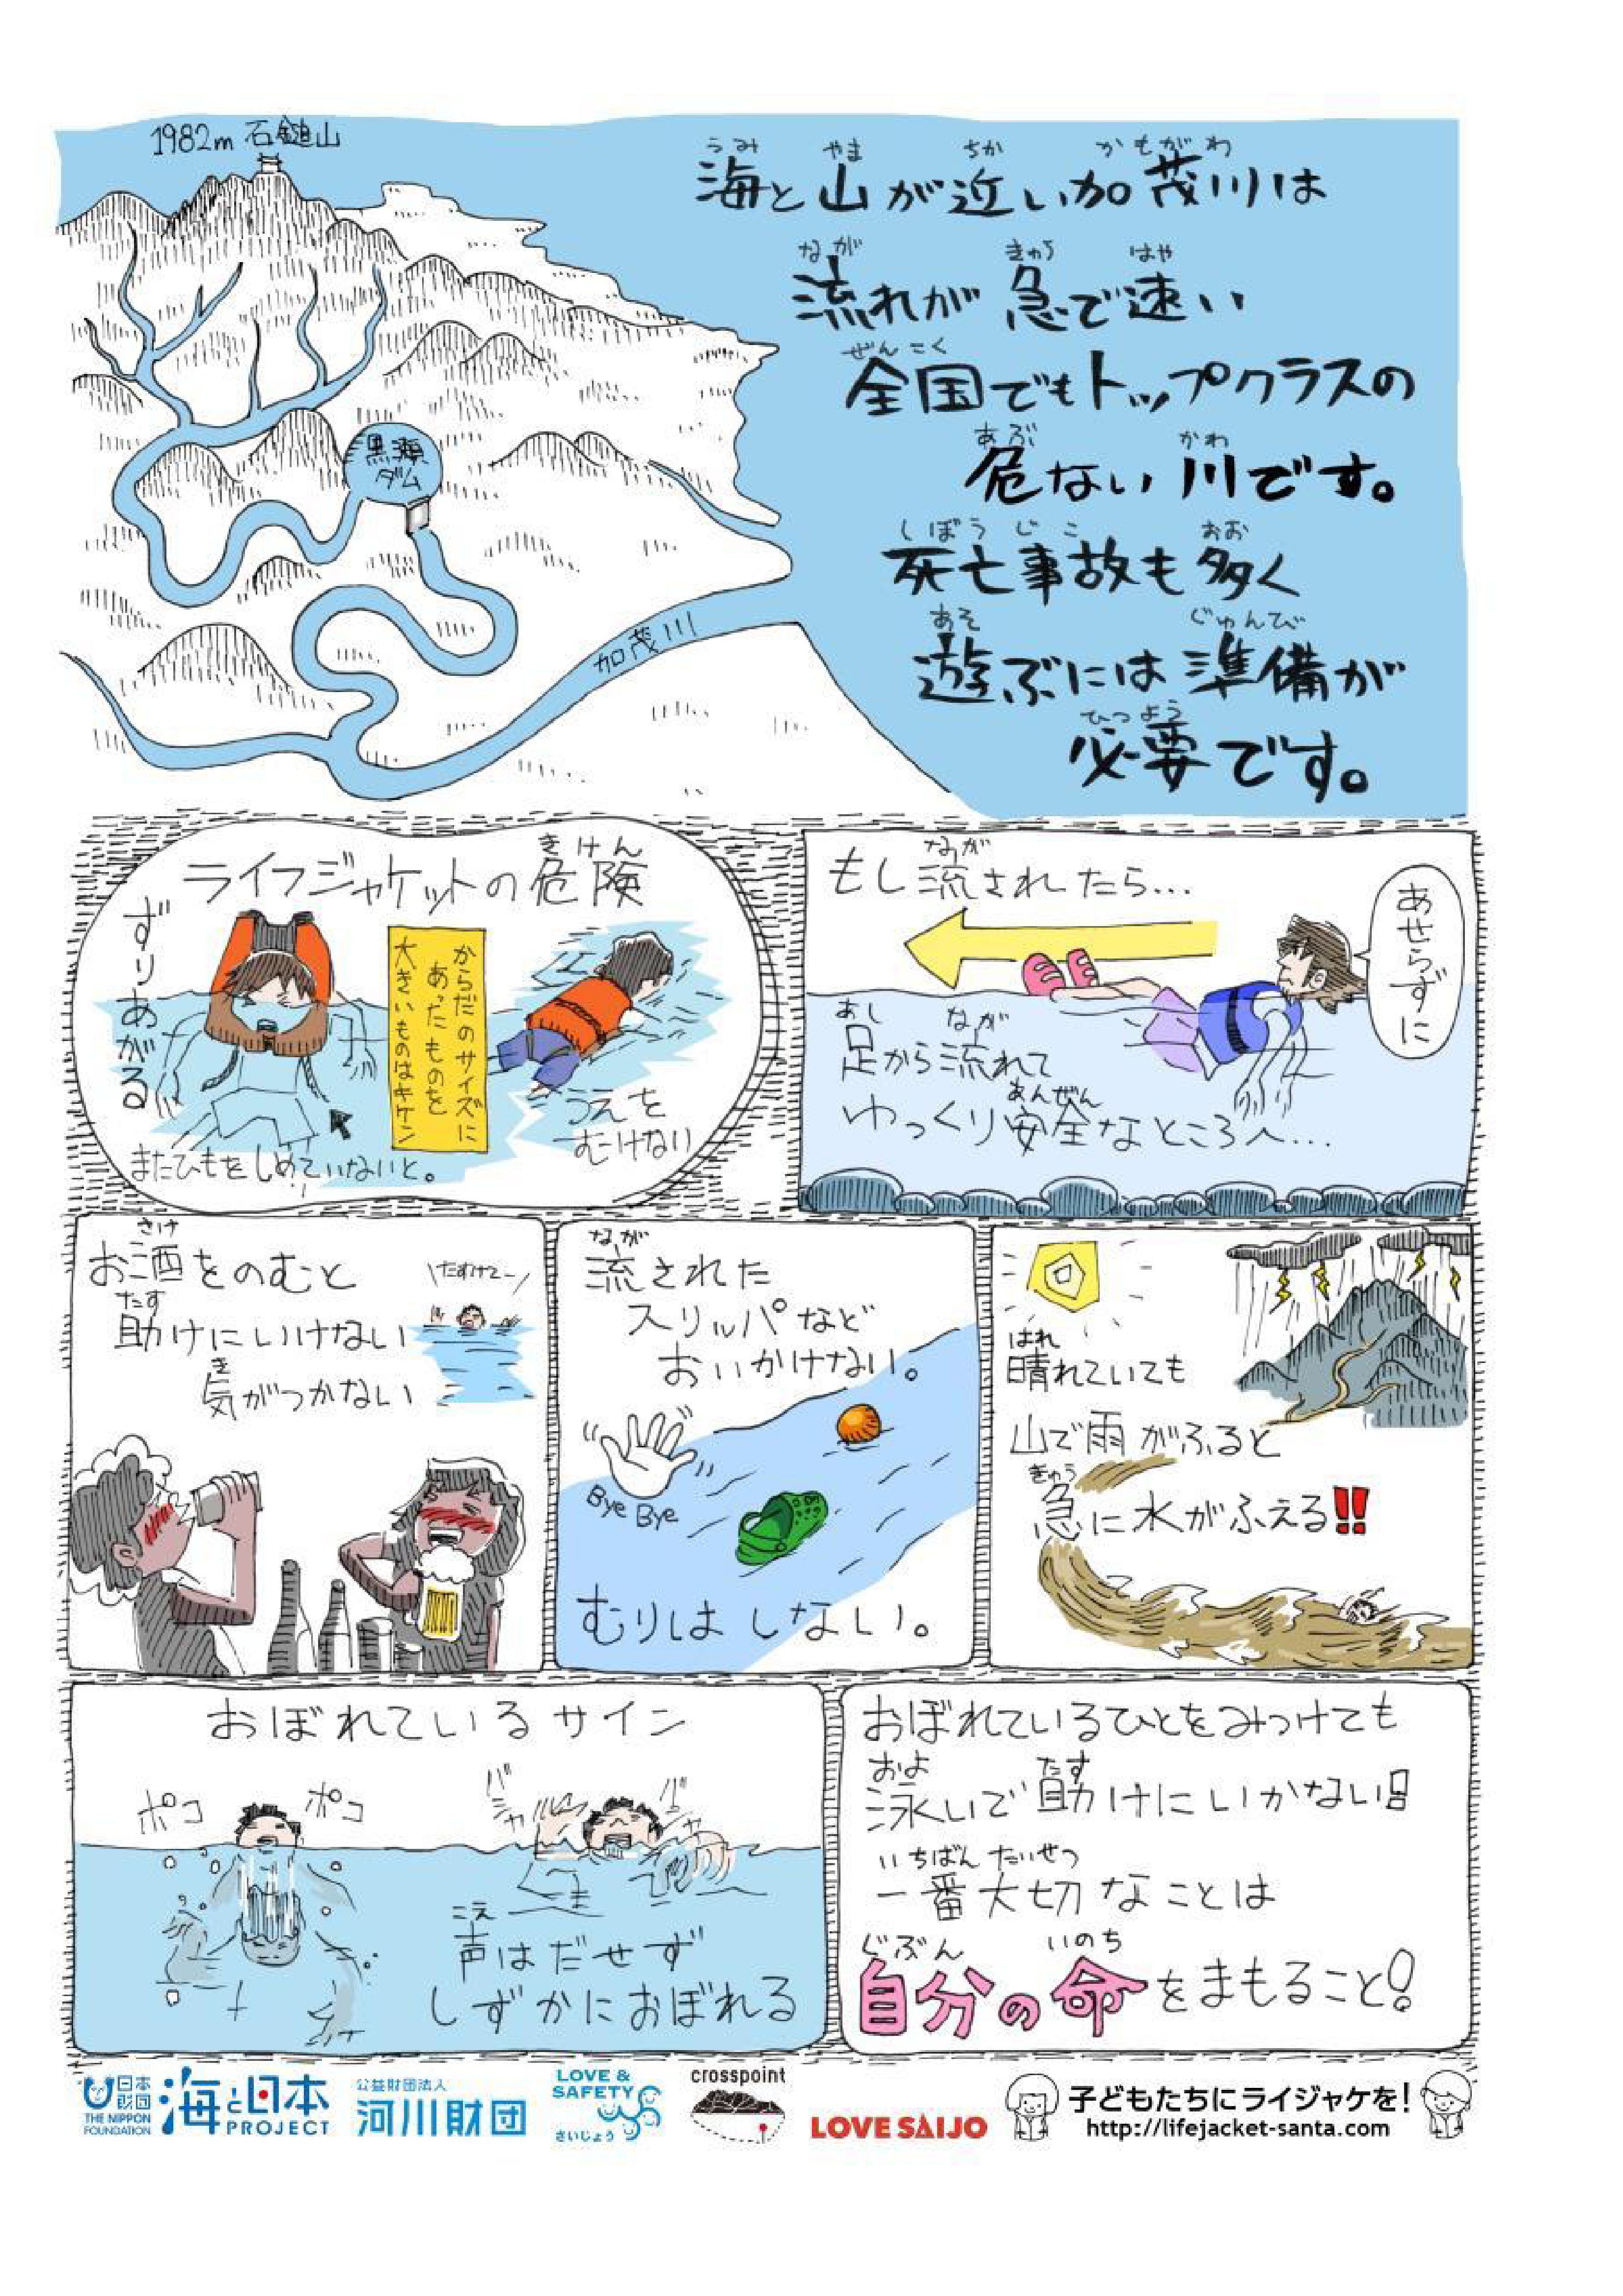 1982m 石鎚山
黒瀬
ダム
加茂川
うみ やま ちか かもがわ
海と山が近い加茂川は
なが きゅう はや
流れが急で速い
ぜんこく
全国でもトップクラスの
あぶ かわ
危ない川です。
しぼうじこ おお
死亡事故も多く
あそ じゅんび
遊ぶには準備が
ひつよう
必要です。
きけん
ライフジャケットの危険
ずりあがる
からだのサイズに
あったものを
大きいものはキケン
うえを
むけない
またひもをしめていないと。
なが
もし流されたら...
あせらずに
あし なが
足から流れて
あんぜん
ゆっくり安全なところへ...
さけ
お酒をのむと
たす
助けにいけない
き
気がつかない
たすけてー
なが
流された
スリッパなど
おいかけない。
Bye Bye
むりはしない。
はれ
晴れていても
山で雨がふると
きゅう
急に水がふえる!!
おぼれているサイン
ポコ ポコ
バシャ バシャ
こえ
声はだせず
しずかにおぼれる
おぼれているひとをみつけても
およ たす
泳いで助けにいかない!
いちばん たいせつ
一番大切なことは
じぶん いのち
自分の命をまもること!
日本財団
THE NIPPON
FOUNDATION
海と日本
PROJECT
公益財団法人
河川財団
LOVE &
SAFETY
さいじょう
crosspoint
LOVE SAIJO
子どもたちにライジャケを!
http://lifejacket-santa.com